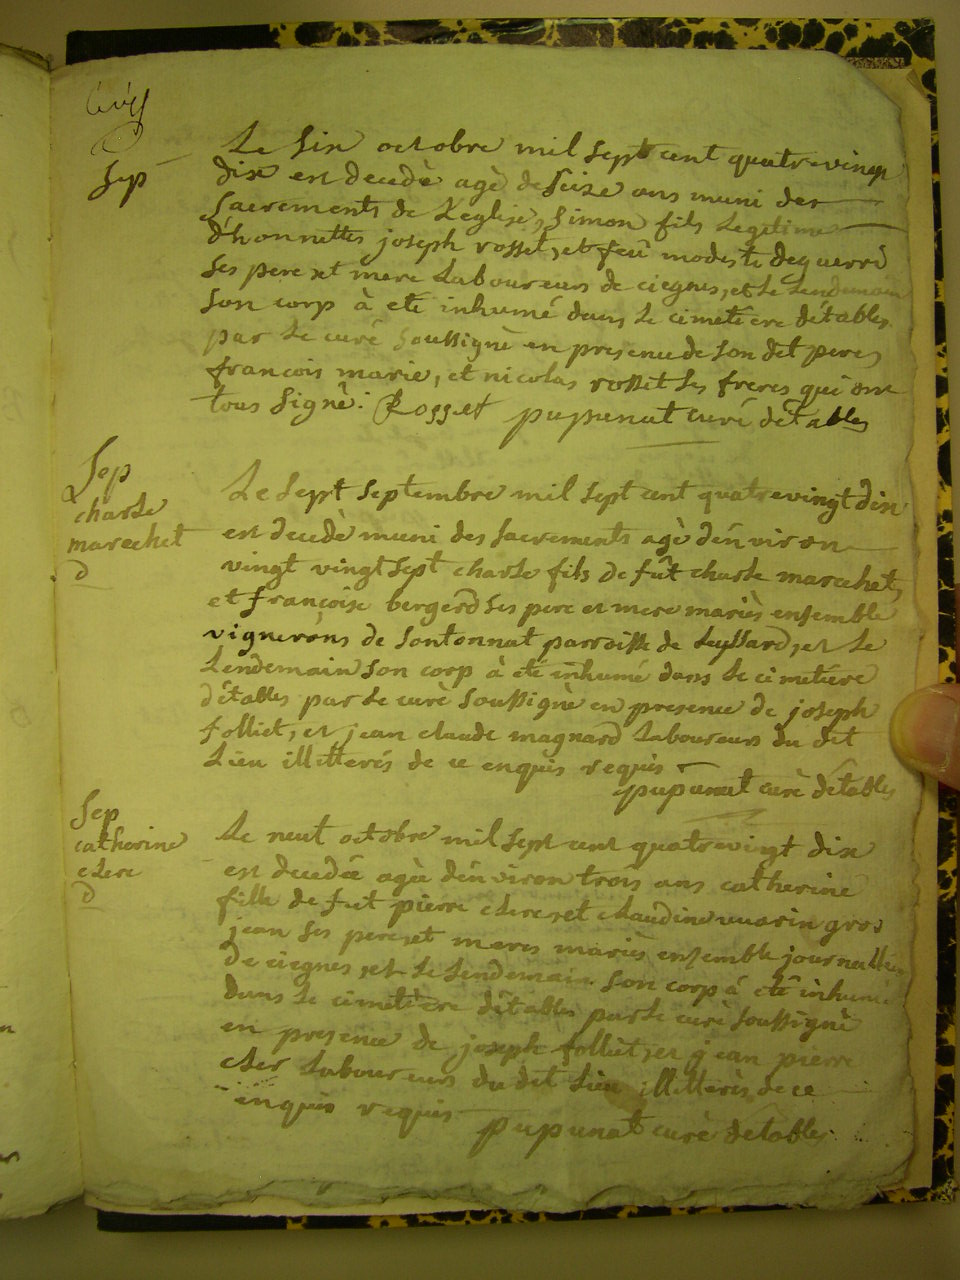 Sep
Le Six octobre mil Sept cent quatrevingt
dix est decedè agè de Seize ans muni des
Sacrements de L'eglise, Simon fils Legitime
d'honnettes joseph rosset, et feû modeste deguerri
Ses pere et mere Laboureurs de ciegnes, et Le Lendemain
Son corp à eté inhumé dans Le cimetiere détables
par Le curé Soussignè en presence de Son dit pere,
françois marie, et nicolas rosset Ses freres qui ont
tous Signè. Rosset pupunat curé détables
Sep
charle
marechet
D
Le Sept Septembre mil Sept cent quatrevingt dix
est decedè muni des Sacrements agè dénviron
vingt vingt Sept charle fils de fût charle marechet,
et françoise bergerd Ses pere et mere mariès ensemble
vignerons de Sontonnat parroisse de Leyssard, et Le
Lendemain Son corp à eté inhumé dans Le cimetiere
détables par Le curè Soussignè en presence de joseph
folliet, et jean claude magnard Laboureurs du dit
Lieu illitterés de ce enquis requis
pupunat curè détables
Sep
catherine
clere
D
Le neuf octobre mil Sept cent quatrevingt dix
est decedée agèe dénviron trois ans catherine
fille de fut pierre clere et claudine vuarin gros
jean Ses pere et mere mariès ensemble journalliers
De ciegnes, et Le Lendemain Son corp á eté inhumé
dans Le cimetière détables par Le curè Soussignè
en presence de joseph folliet, et jean pierre
cler Laboureurs du dit Lieu illitterès de ce
enquis requis pupunat curè détables